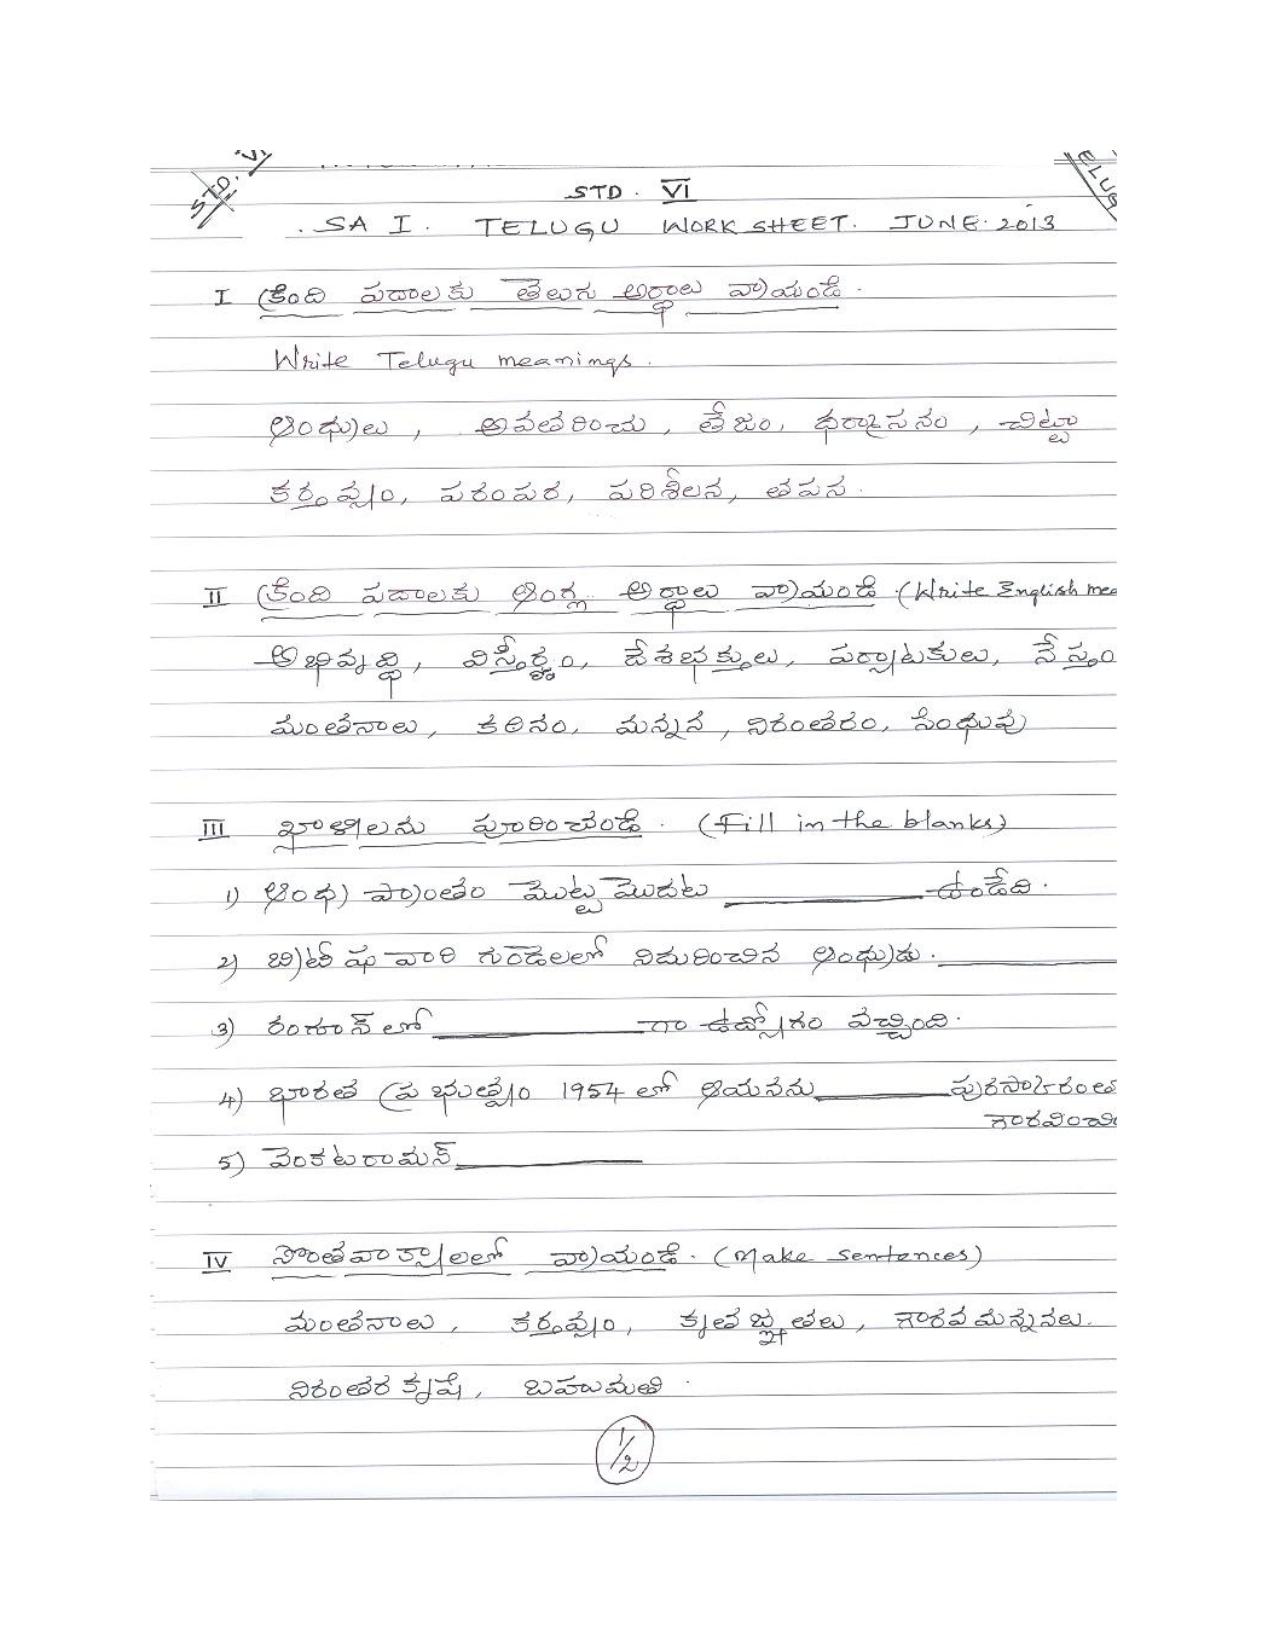 STD. VI
STD. VI
SA I. TELUGU WORK SHEET. JUNE. 2013
I క్రింది పదాలకు తెలుగు అర్థాలు వ్రాయండి.
Write Telugu meanings.
ఆంధ్రులు, అవతరించు, తేజం, ధర్మాసనం, చిట్టా
కర్తవ్యం, పరంపర, పరిశీలన, తపన.
II క్రింది పదాలకు ఆంగ్ల అర్థాలు వ్రాయండి. (Write English mea
అభివృద్ధి, విస్తీర్ణం, దేశభక్తులు, పర్యాటకులు, నేస్తం
మంతనాలు, కఠినం, మన్నన, నిరంతరం, సింధువు
III ఖాళీలను పూరించండి. (Fill in the blanks)
1) ఆంధ్ర ప్రాంతం మొట్టమొదట ________ ఉండేది.
2) బ్రిటీషు వారి గుండెలలో నిదురించిన ఆంధ్రుడు. ________
3) రంగూన్ లో ________ గా ఉద్యోగం వచ్చింది.
4) భారత ప్రభుత్వం 1954 లో ఆయనను ________ పురస్కారంత
గౌరవించి
5) వెంకటరామన్ ________
IV సొంతవాక్యాలలో వ్రాయండి. (Make sentences)
మంతనాలు, కర్తవ్యం, కృతజ్ఞతలు, గౌరవమన్ననలు.
నిరంతర కృషి, బహుమతి.
1/2